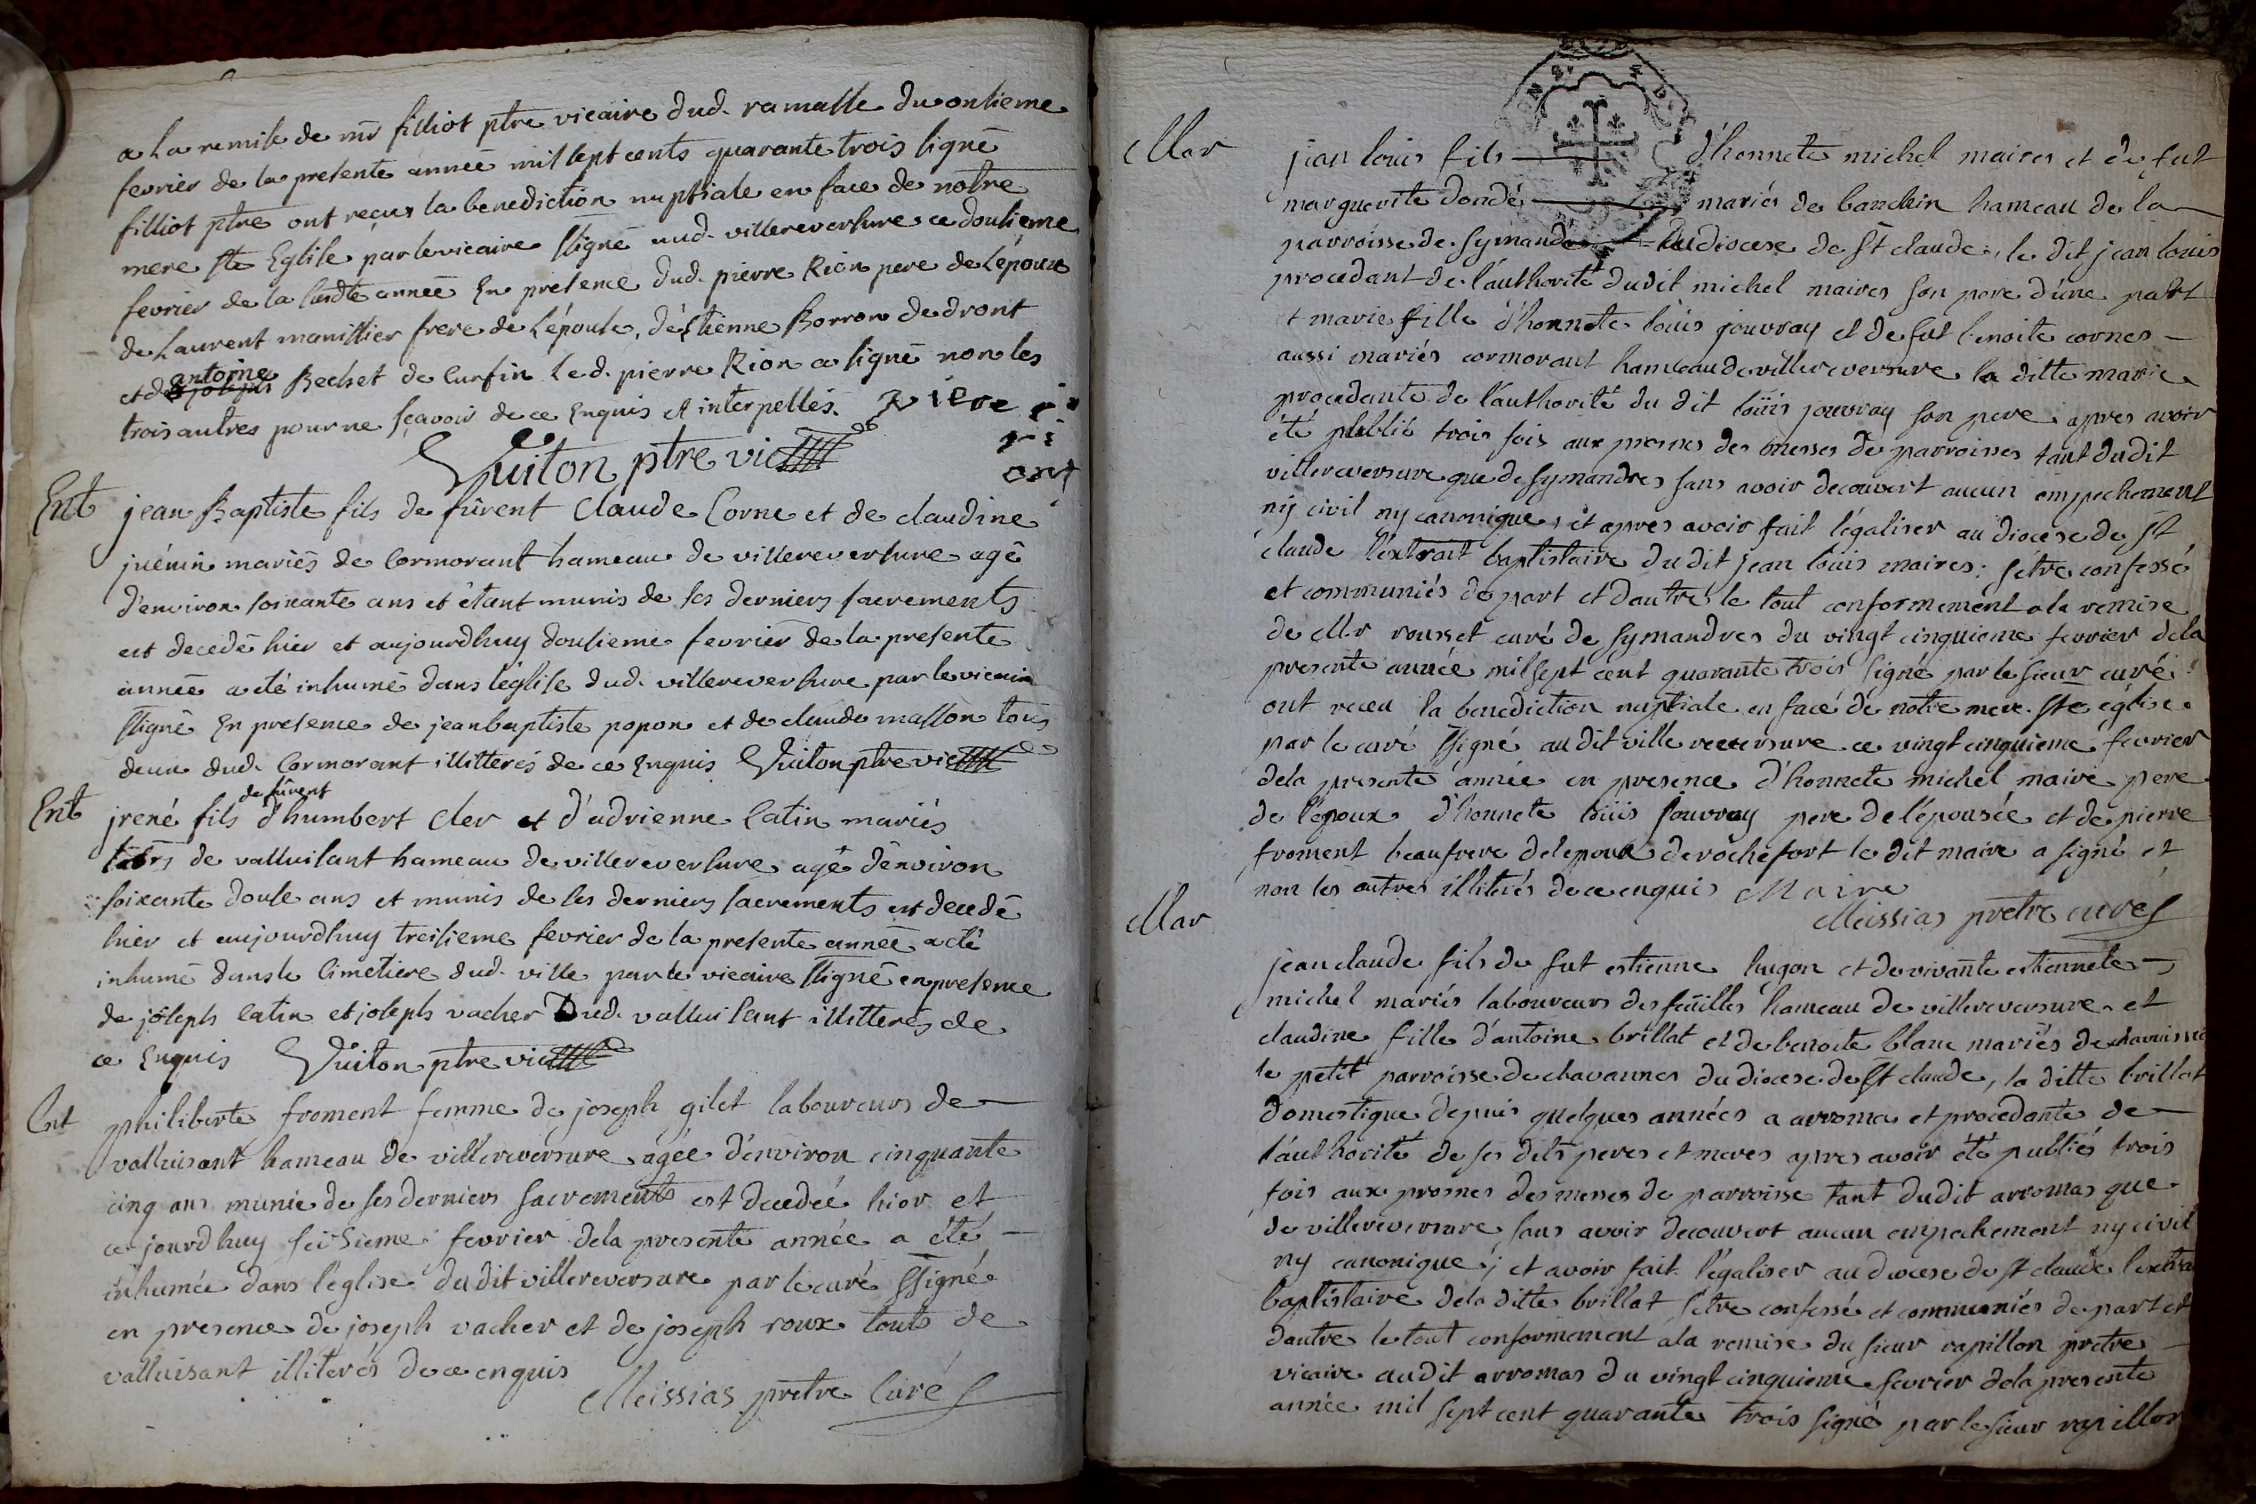 a la remise de mr filliot ptre vicaire dud. ramasse du onsieme
fevrier de la presente année mil sept cents quarante trois signé
filliot ptre ont reçus la benediction nuptiale en face de notre
mere ste Eglise par le vicaire ssigné aud. villereversure ce dousieme
fevrier de la susdte année En presence dud. pierre Rion pere de l'époux
de Laurent manissier frere de l'épouse, d'éstienne Borron de dront
antoine
et de Bechet de Curfin le d. pierre Rion a signé non les
trois autres pour ne sçavoir de ce Enquis et interpellés. piere
ri
ont
Vuiton ptre vic
Ent jean Baptiste fils de fûrent Claude Corne et de claudine
juénin mariés de Cormorant hameau de villereversure agé
d'environ soixante ans et étant munis de ses derniers sacrements
est decedé hier et aujourdhuy dousieme fevrier de la presente
année a été inhumé dans léglise dud. villereversure par le vicaire
ssigné En presence de jean baptiste popon et de claude masson tous
deux dud. Cormorant illitterés de ce Enquis Vuiton ptre vic
de fûrent
Ent jrené fils d'humbert cler et d'adrienne Catin mariés
de valluisant hameau de villereversure agé d'environ
soixante douse ans et munis de ses derniers sacrements est decedé
hier et aujourdhuy treisieme fevrier de la presente année a été
inhumé dans le Cimetiere dud. ville par le vicaire ssigné en presence
de joseph Catin et joseph vacher Dud. valluisant illitterés de
ce Enquis Vuiton ptre vic
Ent philiberte froment femme de joseph gilet laboureurs de
valluisant hameau de villereversure agée d'environ cinquante
cinq ans munie de ses derniers sacrements est decedée hier et
ce jourdhuy seisieme fevrier dela presente année a été
inhumée dans l'église dudit villereversure par le curé ssigné
en presence de joseph vacher et de joseph roux touts de
valluisant illiterés de ce enquis
Meissias pretre Curé
Mar jean louis fils d'honnete michel maires et de fut
marguerite dondé mariés de banchin hameau de la
parroisse de symandre du diocese de st claude, le dit jean louis
procedant de l'authorité dudit michel maires son pere d'une part
et marie fille d'honnete louis jouvray et de fut benoite cornes
aussi mariés cormorant hameau de villereversure la ditte marie
procedante de l'authorité du dit loüis jouvray son pere apres avoir
été publié trois fois aux prosnes des messes de parroisses tant dudit
villereversure que de symandres sans avoir decouvert aucun empechement
ny civil ny canonique, et apres avoir fait légaliser au diocese de st
claude l'extrait baptistaire du dit jean louis maires: s'étre confessé
et communiés de part et dautre le tout conformement a la remise
de Mr rousset curé de symandres du vingt cinquieme fevrier dela
presente année mil sept cent quarante trois signé par le sieur curé
ont receu la benediction nuptiale en face de notre mere ste église
par le curé ssigné au dit villereversure ce vingt cinquieme fevrier
dela presente année en presence d'honnete michel maire pere
de l'époux d'honnete loüis jouvray pere de l'épousée et de pierre
froment beaufrere de lepoux de rochefort le dit maire a signé et
non les autres illiterés de ce enquis Maire
Meissias pretre curé
Mar
jean claude fils de fut estienne hugon et de vivante estiennete
michel mariés laboureurs des feüilles hameau de villereversure et
claudine fille d'antoine brillat et de benoite blanc mariés de
le petit parroisse de chavannes du diocese de st claude, la ditte brillat
domestique depuis quelques années a arromas et procedante de
l'authorité de ses dits peres et meres apres avoir été publiés trois
fois aux prosnes des messes de parroisse tant dudit arromas que
de villereversure sans avoir decouvert aucun empechement ny civil
ny canonique; et avoir fait légaliser au diocese de st claude l'extrai
baptistaire dela ditte brillat s'étre confessé et communiés de part et
dautre le tout conformement ala remise du sieur rapillon pretre
vicaire audit arromas du vingt cinquieme fevrier dela presente
année mil sept cent quarante trois signé par le sieur rapillon